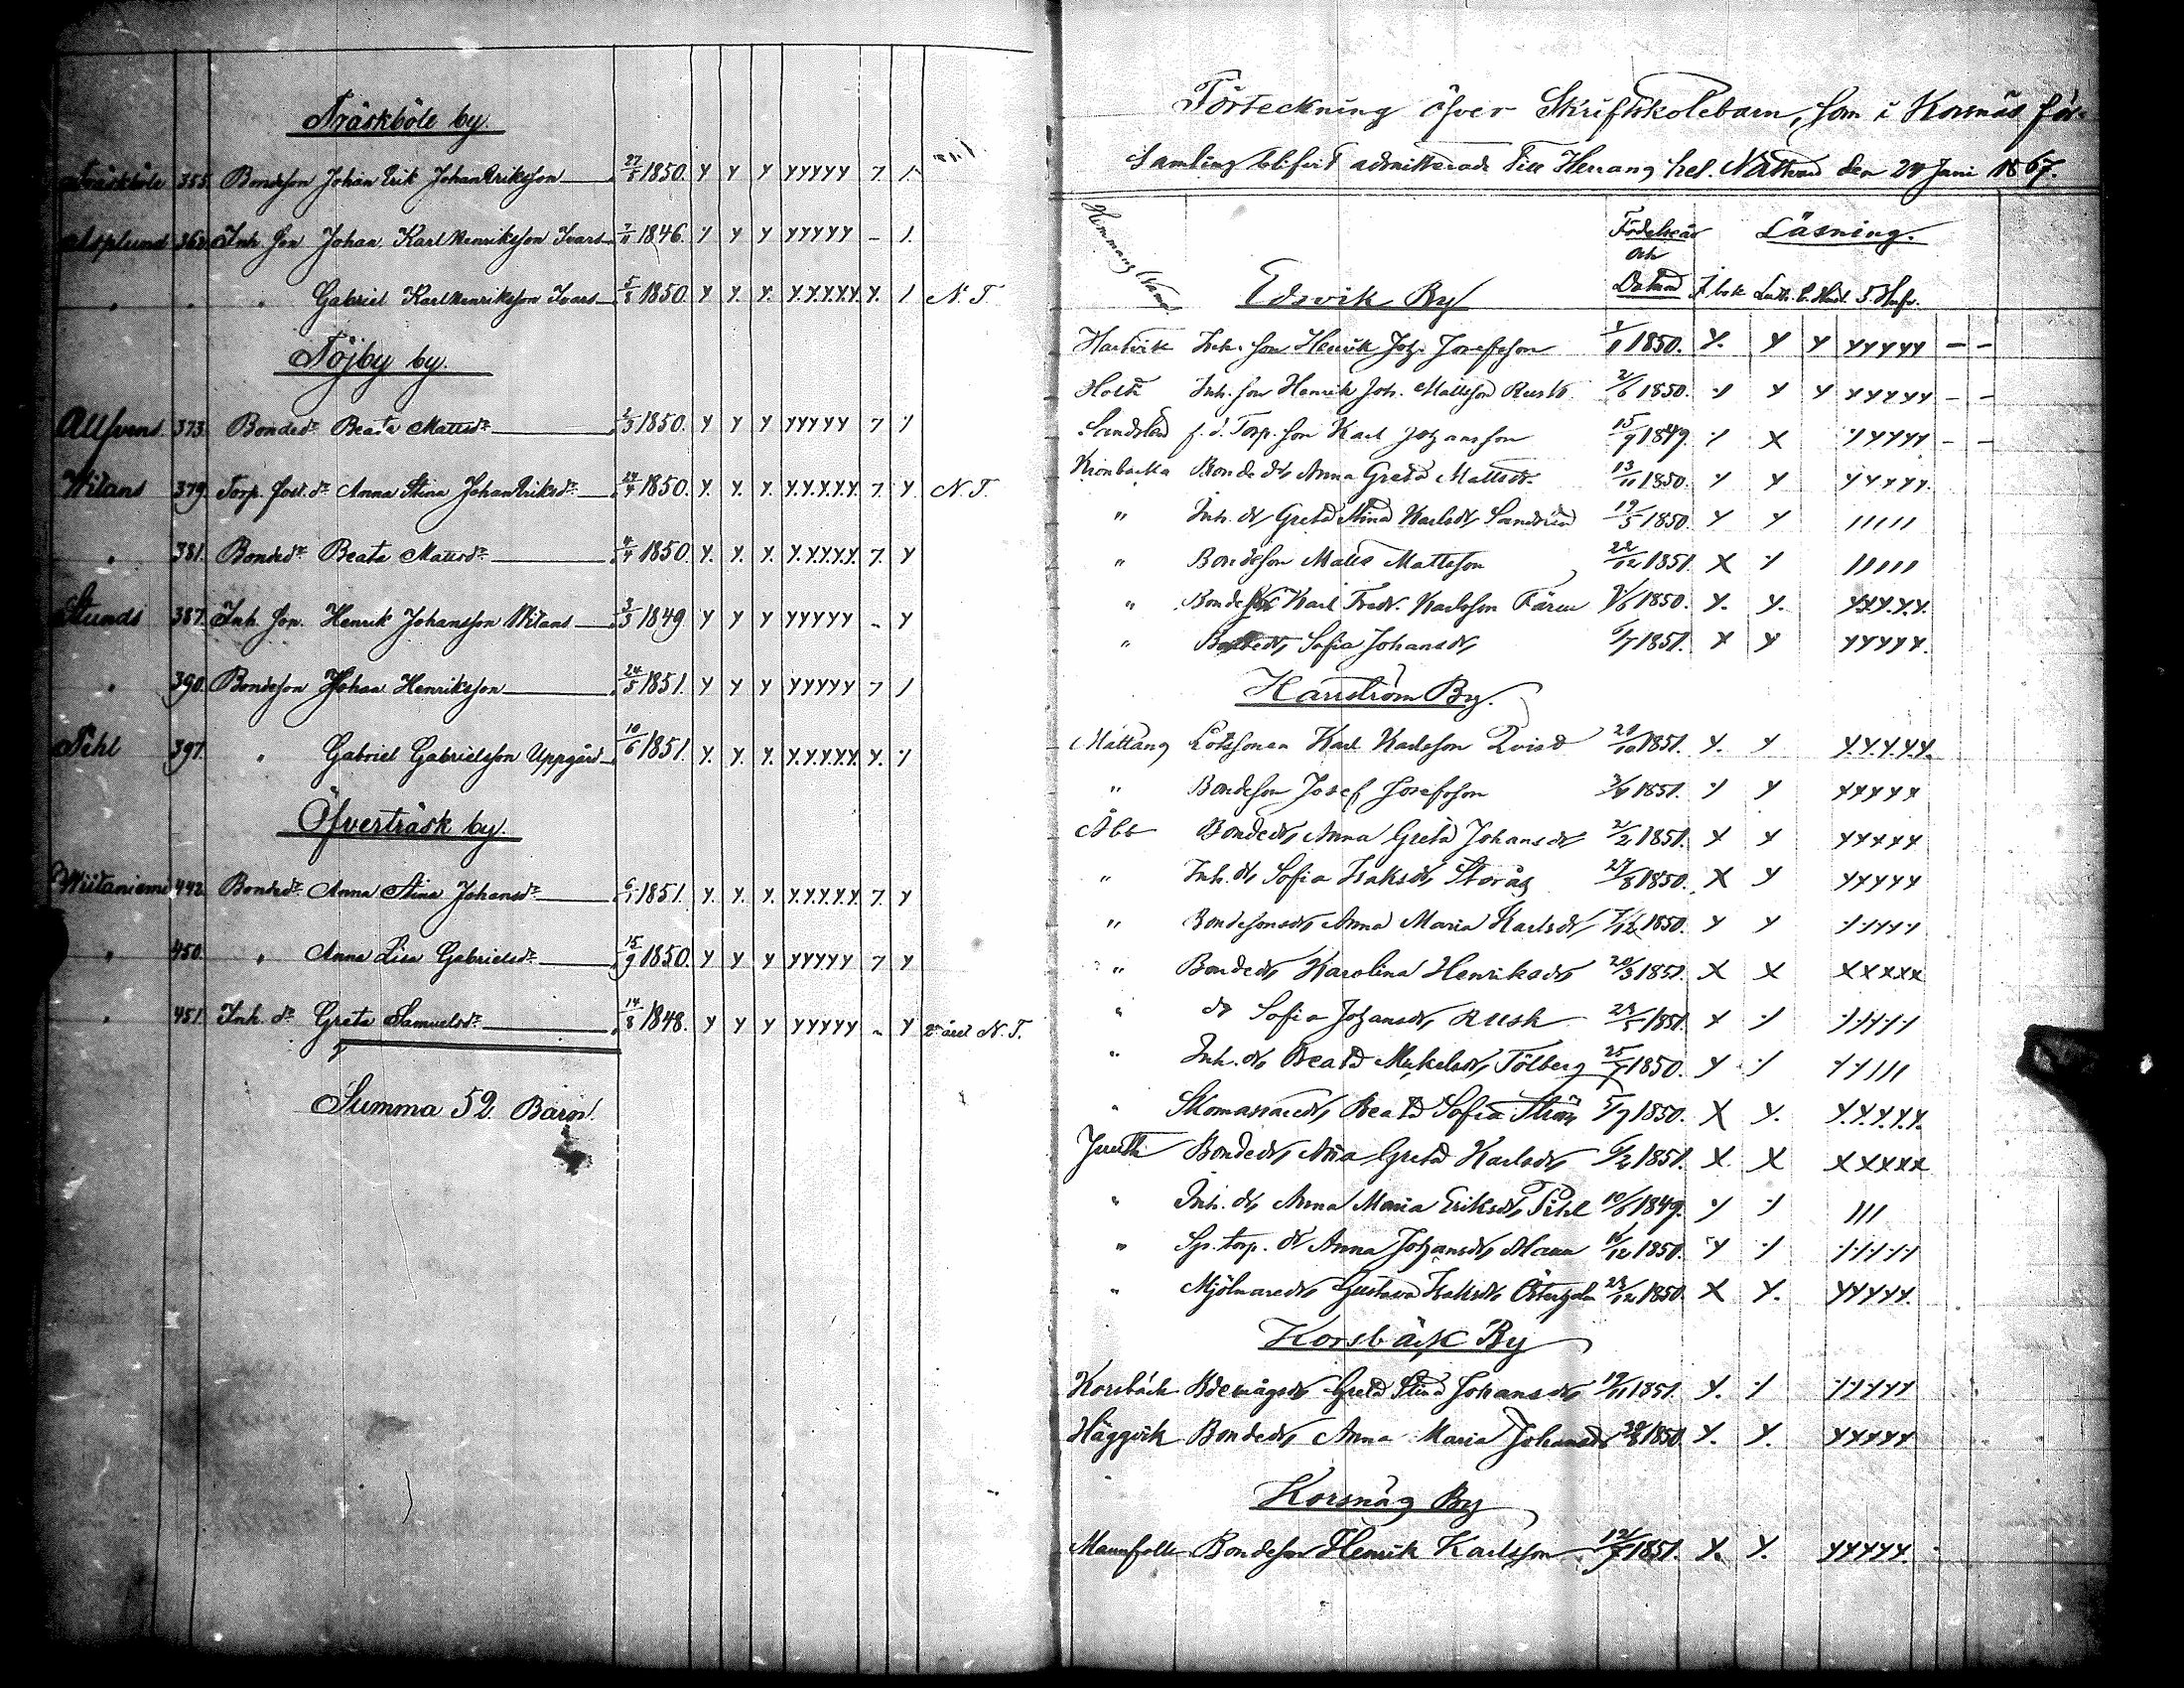 Träskböle by.
Träskböle 355. Bondeson Johan Erik JohanEriksson 27/5 1850. Y Y Y YYYYY 7. 1.
Asplund 368. Inh. son Johan Karl Henriksson Ivars 7/11 1846. Y Y Y YYYYY – 1.
" " " Gabriel Karl Henriksson Ivars 5/5 1850. Y Y. Y. Y.Y.Y.Y.Y. Y. 1 N. T.
Töjby by.
Allsvens 373. Bondedr Beata Mattsdr 2/3 1850. Y Y Y YYYYY 7 1
Witans 379. Torp. fost. dr Anna Stina JohanEriksdr 24/4 1850. Y. Y. Y. Y.Y.Y.Y.Y. 7. Y N. T.
" 381. Bondedr Beata Mattsdr 4/4 1850. Y. Y. Y. Y.Y.Y.Y.Y. 7. Y
Stunds 387. Inh. son. Henrik Johansson Witans 3/3 1849 Y Y Y YYYYY – Y
" 390. Bondeson Johan Henriksson 24/5 1851. Y Y Y YYYYY 7 1
Pihl 397. " Gabriel Gabrielsson Uppgård 10/6 1851. Y. Y. Y. Y.Y.Y.Y.Y. Y. 1
Öfverträsk by.
Wiitaniemi 442. Bondedr Anna Stina Johansdr 6/1 1851. Y. Y. Y. Y.Y.Y.Y.Y. 7. Y
" 450. " Anna Lisa Gabrielsdr 15/9 1850. Y Y Y YYYYY 7 Y
" 451. Inh. dr Greta Samuelsdr 14/8 1848. Y Y Y YYYYY – Y 2 året N. T.
Summa 52 Barn.
Förteckning öfver Skriftskolebarn, som i Korsnäs för-
samling blifvit admitterade till Herrans hel. Nattvard den 24 Juni 1867.
Hemmans Namn. Födelseår och Datum Läsning.
Edsvik By A bok Luth. C. Hust. 5. Hufv.
Hartvik Inh. son Henrik Joh. Josefsson 1/11 1850. Y. Y Y YYYYY – –
Holti Inh. son Henrik Joh. Mattsson Rusk 2/6 1850. Y Y Y YYYYY – –
Sandslad f. d. Torp. son Karl Johansson 15/9 1849. Y X YYYYY – –
Kronbacka Bonde dr Anna Greta Mattsdr 13/11 1850. Y Y YYYYY.
" Inh. dr Greta Stina Karlsdr 19/5 1850. Y Y 11111
" Bondeson Matts Mattsson 22/12 1851. X Y 11111
" Bondeson Karl Fredr. Karlsson 1850. Y. Y. YYY.Y.Y.
" Bondedr Sofia Johansdr 6/7 1851. Y Y YYYYY.
Harrström By.
Mattans Lotssonen Karl Karlsson Qvist 20/10 1851. Y. Y Y.Y.Y.Y.Y.
" Bondeson Josef Josefsson 3/6 1851. Y Y YYYYY
Åbb Bondedr Anna Greta Johansdr 2/2 1851. Y Y YYYYY
" Inh. dr Sofia Isaksdr Storås 27/8 1850. X Y YYYYY
" Bondesonsdr Anna Maria Karlsdr 7/12 1850. Y Y YYYYY
" Bondedr Karolina Henriksdr 20/3 1851. X X XXXXX
" dr Sofia Johansdr Rusk 23/5 1851. Y Y YYYYY
" Inh. dr Beata Mickelsdr Tölberg 25/7 1850. Y Y YY111
" Skomakaredr Beata Sofia Ström 5/7 1850. X Y. Y.Y.Y.Y.Y.
Juuth Bondedr Anna Greta Karlsdr 6/2 1851. X X XXXXX
" Inh. dr Anna Maria Eriksdr Pihl 10/6 1849. Y Y 111
" Sp. torp. dr Anna Johansdr Mann 16/12 1850. Y Y YYYYY
" Mjölnaredr Gustava Isaksdr Östergård 23/12 1850. X Y. YYYYY.
Korsbäck By
Korsbäck Greta Stina Johansdr 19/11 1851. Y. Y YYYYY
Häggvik Bondedr Anna Maria Johansdr 20/8 1850. Y. Y. YYYYY
Korsnäs By
Mannfolk Bondeson Henrik Karlsson 12/7 1851. Y. Y. YYYYY.